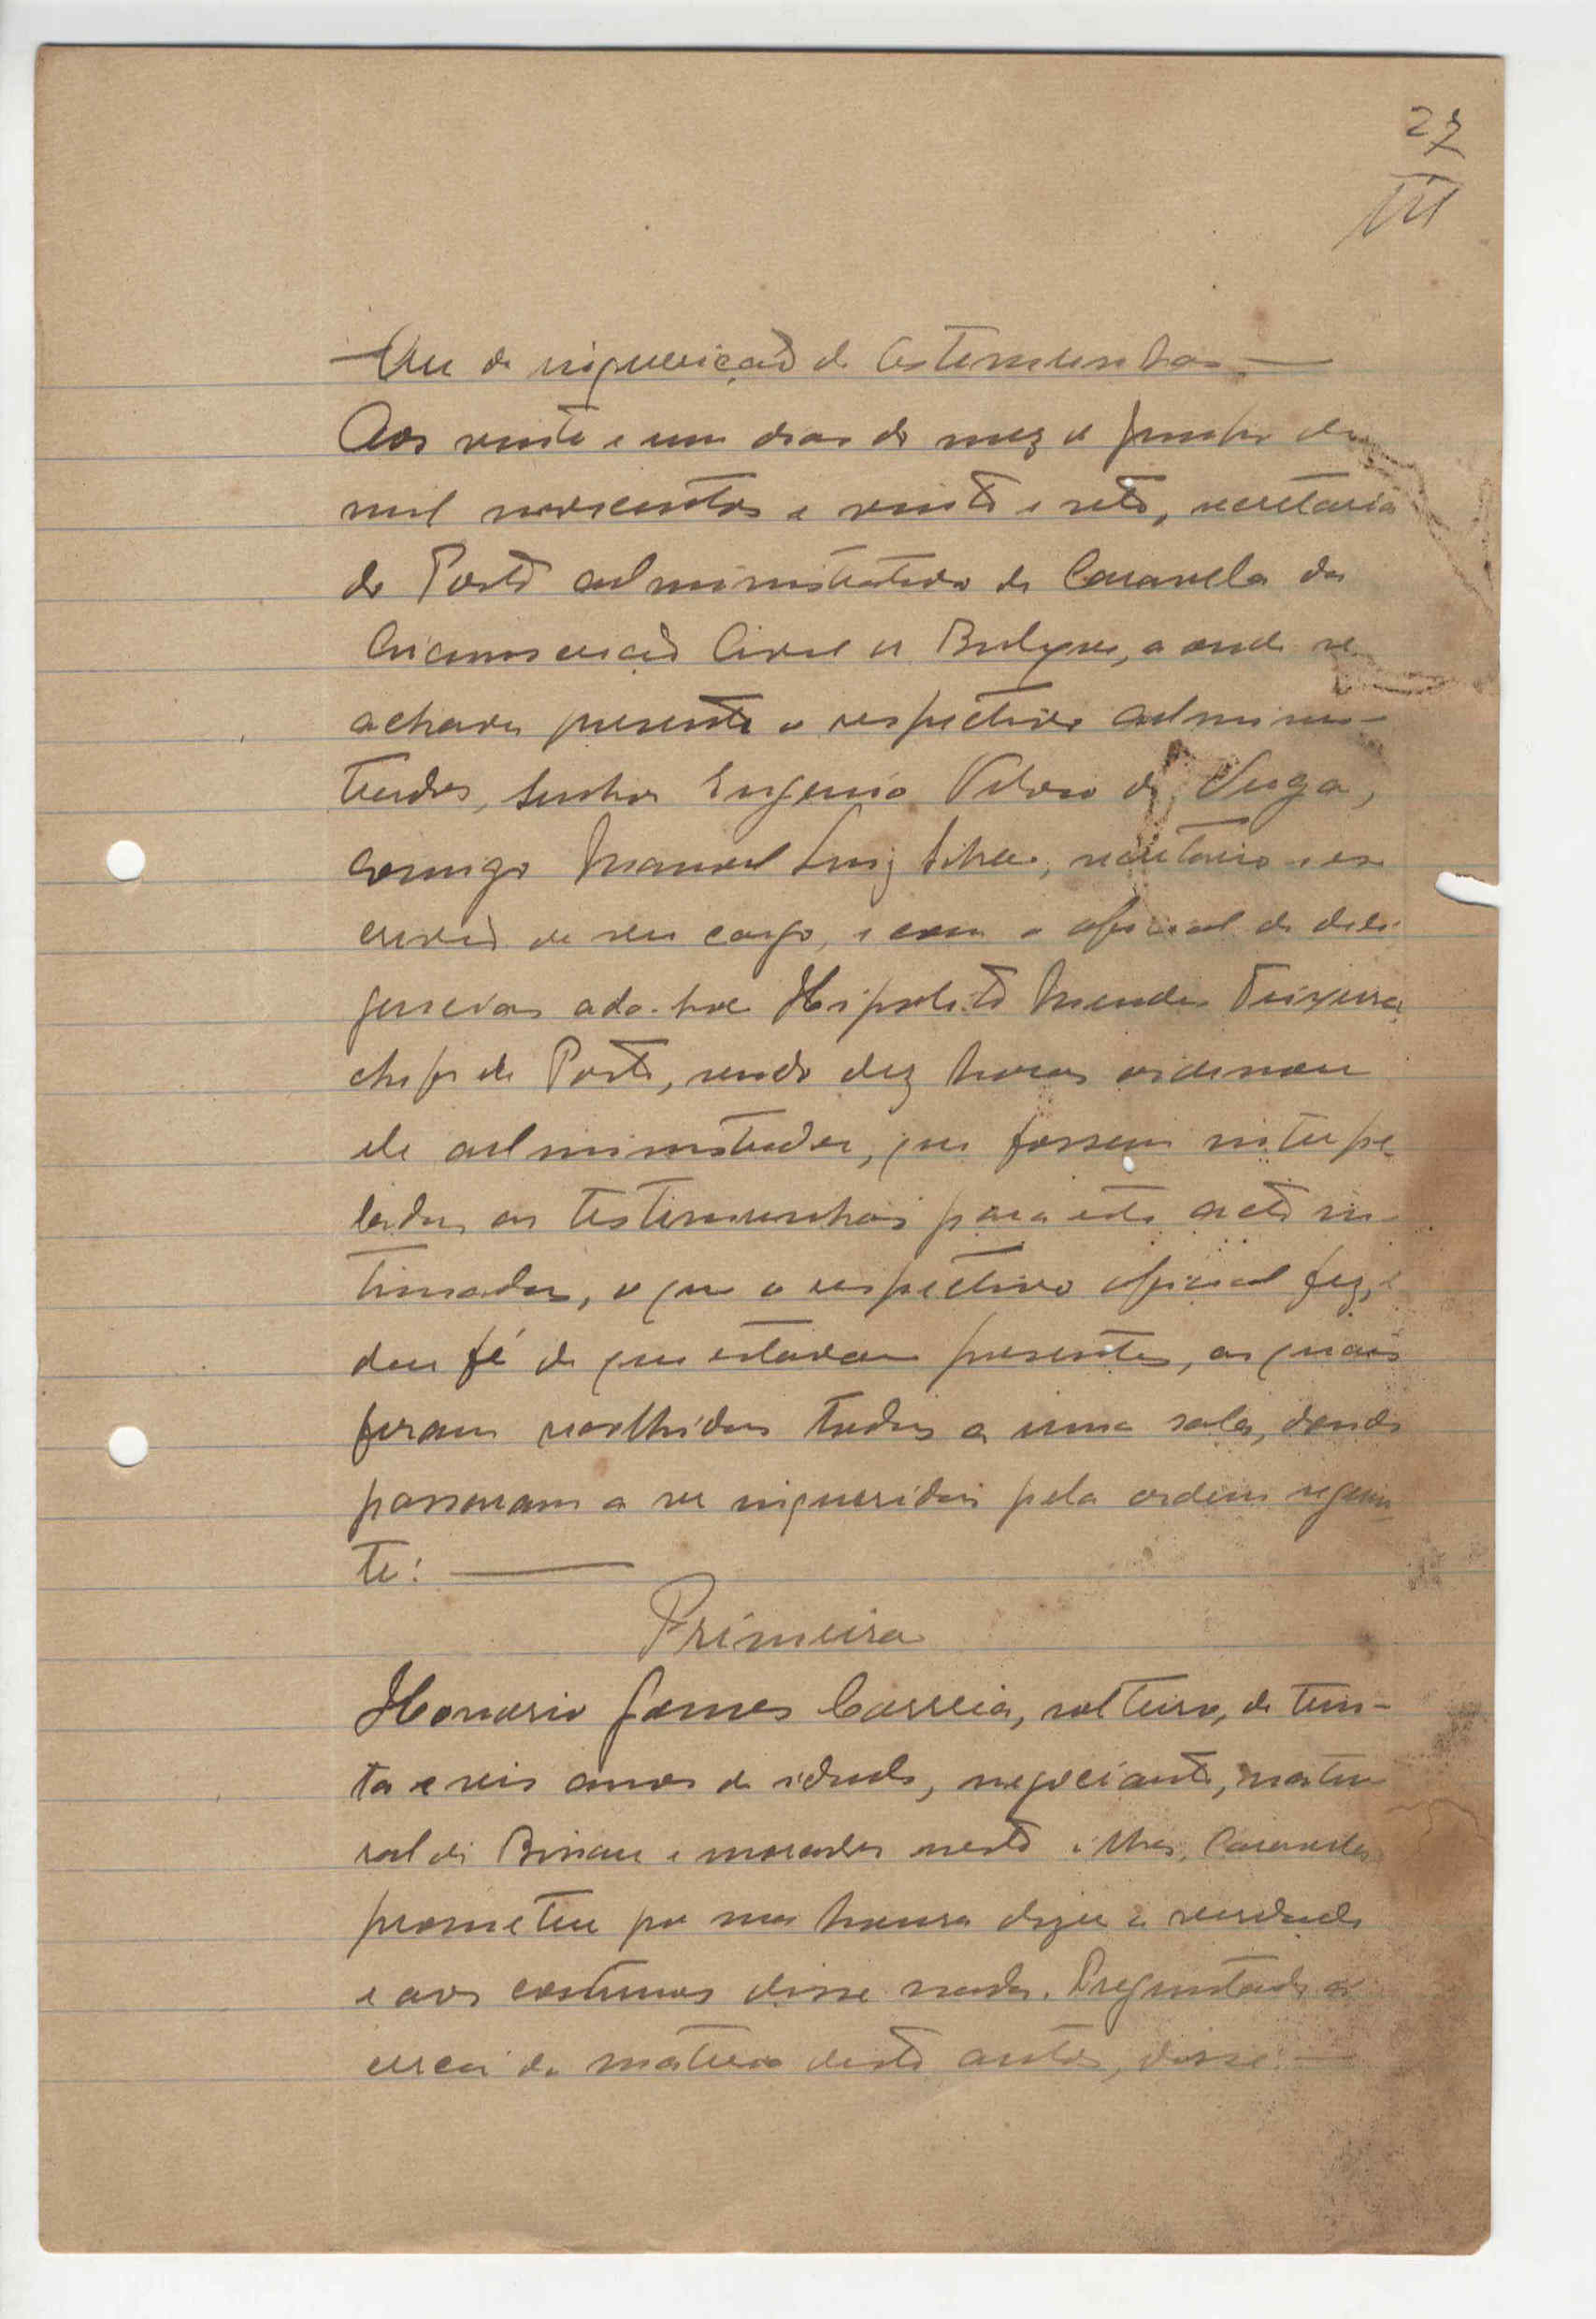 27
Auto de inquirição de testemunhas —
Aos vinte e um dias do mez de Junho de
mil novecentos e vinte e sete, secretaria
do Posto administrativo de Caravela da
Circunscrição Civil de Bolama, aonde se
achava presente o respectivo adminis-
trador, Senhor Eugenio da Veiga,
comigo Manoel Luiz Silva, secretario e es
crivão do seu cargo, e com o oficial de dili-
gencias ado-hoc Hipolito Mendes Teixeira
chefe de Posto, sendo dez horas ordenou
ele administrador, que fossem interpe-
ladas as testemunhas para este acto in-
timadas, o que o respectivo oficial fez, e
deu fé de que estavam presentes, as quais
foram recolhidas todas a uma sala, donde
passaram a ser inqueridas pela ordem seguin-
te: —
Primeira
Honorio Gomes Correia, solteiro, de trin-
ta e seis anos de idade, negociante, natu
ral de Bissau e morador nesta ilha, Caravela
prometeu por sua honra dizer a verdade
e aos costumes disse nada. Preguntado á
cerca da materia deste autos, disse: —